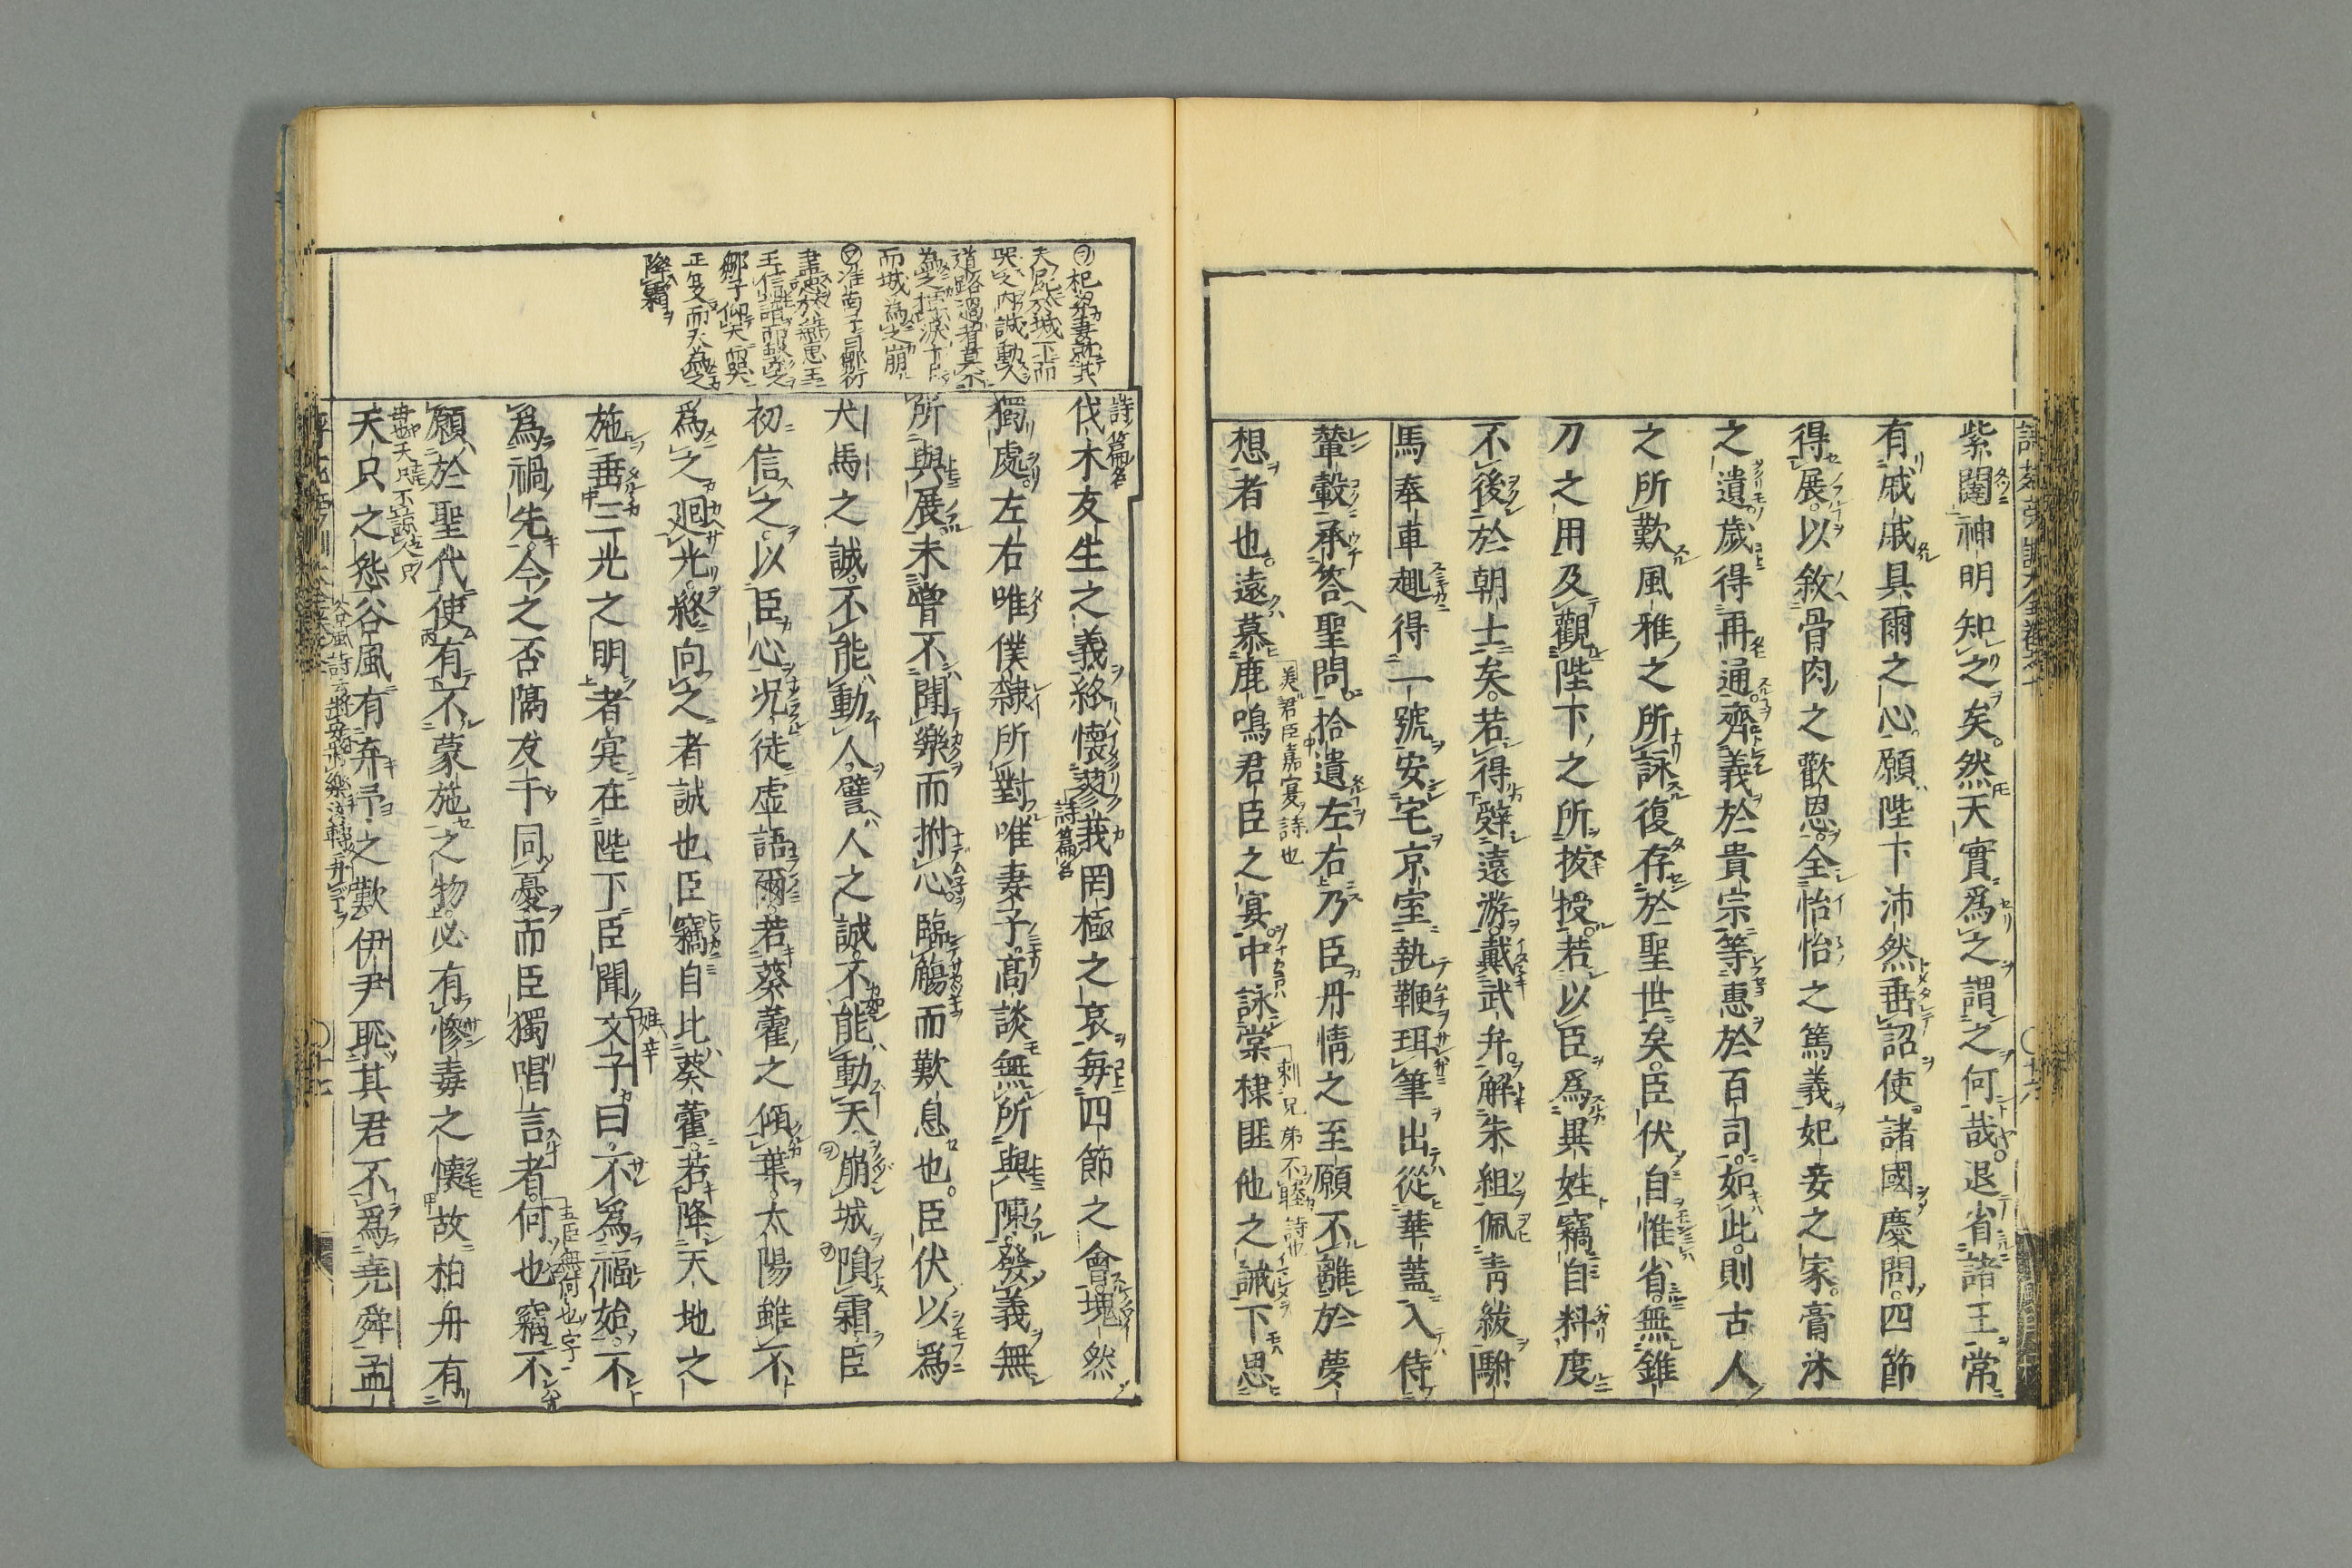 紫闥神明知之矣。然天實爲之謂之何哉。退省諸王常
有戚戚具爾之心。願陛下沛然垂詔使諸國慶問。四節
得展。以敘骨肉之歡恩。全怡怡之篤義妃妾之家。膏沐
之遺歲得再通。齊義於貴宗等惠於百司。如此。則古人
之所歎風雅之所詠復存於聖世矣。臣伏自惟省。無錐
刀之用及觀陛下之所拔授。若以臣爲異姓竊自料度
不後於朝士矣。若得辭遠游。戴武弁。解朱組佩青紱駙
馬奉車趣得一號安宅京室執鞭珥筆出從華蓋入侍
輦轂承答聖問。拾遺左右乃臣丹情之至願不離於夢
想者也。遠慕鹿鳴君臣之宴。中詠棠棣匪他之誡下思
美君臣嘉宴詩也
刺兄弟不睦詩也
伐木友生之義終懷蓼莪罔極之哀每四節之會塊然
詩篇名
詩篇名
獨處。左右唯僕隸所對唯妻子。高談無所與陳發義無
所與展未嘗不聞樂而拊心。臨觴而歎息也。臣伏以爲
犬馬之誠不能動人。譬人之誠。不能動天崩城隕霜臣
初信之。以臣心況徒虛語爾。若葵藿之傾葉。太陽雖不
爲之迴光終向之者誠也臣竊自比葵藿。若降天地之
施垂三光之明者寔在陛下臣聞文子曰。不爲福始。不
姓辛
爲禍先。今之否隔友于同憂而臣獨唱言者。何也竊不
五臣無何也字
願於聖代使有不蒙施之物。必有慘毒之懷故柏舟有
天只之怨谷風有弃予之歎伊尹恥其君不爲堯舜孟
母也天只不諒人只
谷風詩云將安將樂汝轉弃予
杞梁妻就其
夫屍於城下而
哭之內誠動人
道路過者莫不
爲之揮涕十日
而城爲之崩
淮南子曰鄒衍
盡忠於燕惠王
王信譖而繫之
鄒子仰天而哭
正夏而天爲之
降霜